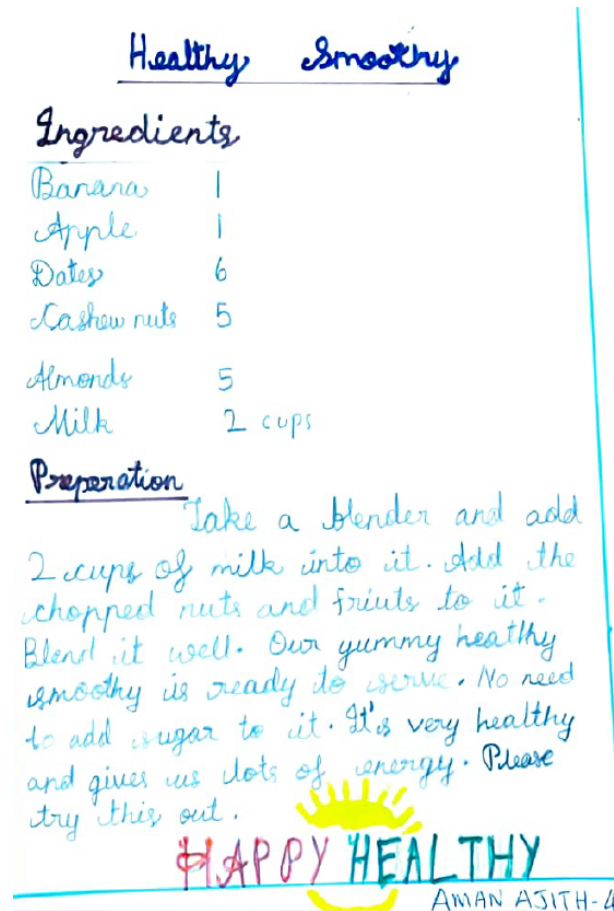 Healthy Smoothy
Ingredients
Banana 1
Apple 1
Dates 6
Cashew nuts 5
Almonds 5
Milk 2 cups
Preperation
Take a blender and add
2 cups of milk into it. Add the
chopped nuts and friuts to it.
Blend it well. Our yummy heatlhy
smoothy is ready to serve. No need
to add sugar to it. It's very healthy
and gives us lots of energy. Please
try this out.
HAPPY HEALTHY
AMAN AJITH-4